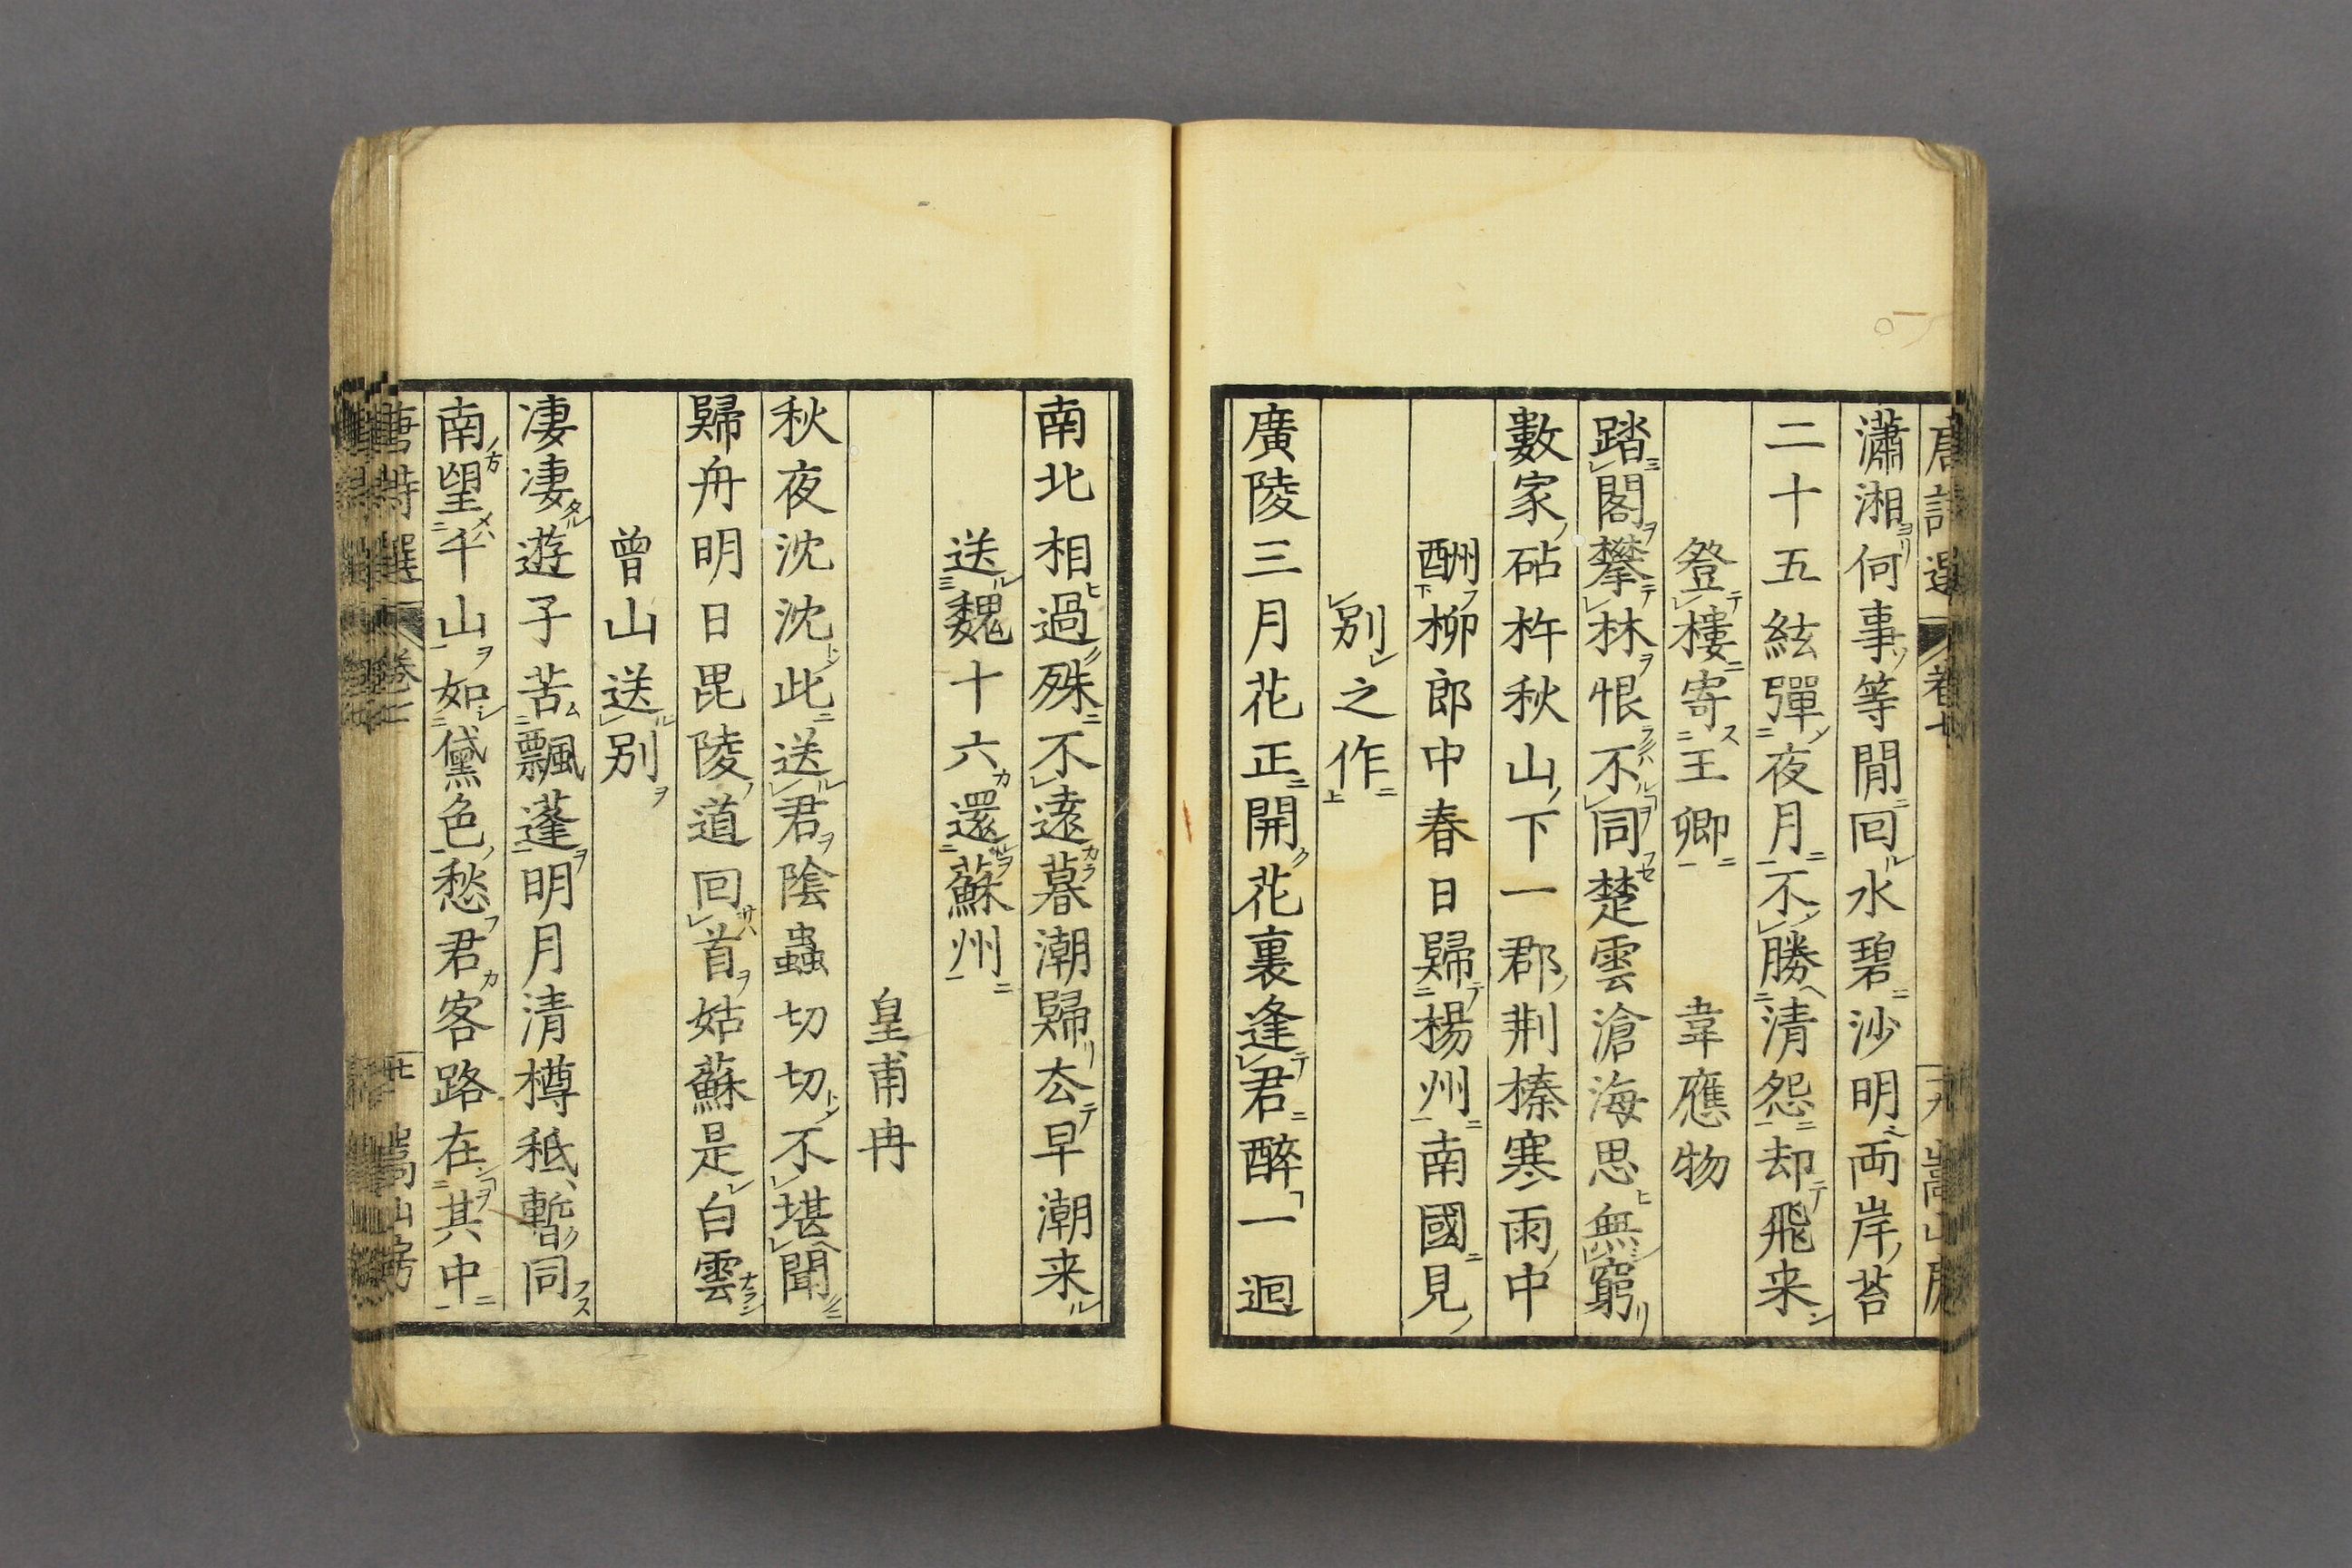 唐詩選 卷七 嵩山房
瀟湘何事等閒回水碧沙明両岸苔
二十五絃彈夜月不勝清怨却飛来
登樓寄王卿 韋應物
踏閣攀林恨不同楚雲滄海思無窮
數家砧杵秋山下一郡荆榛寒雨中
酬柳郎中春日歸楊州南國見
別之作
廣陵三月花正開花裏逢君醉一迴
南北相過殊不遠暮潮歸厺早潮来
送魏十六還蘇州
皇甫冉
秋夜沈沈此送君陰蟲切切不堪聞
歸舟明日毘陵道回首姑蘇是白雲
曾山送別
凄凄遊子苦飄蓬明月清樽秪暫同
南望千山如黛色愁君客路在其中
唐詩選 卷七 廿 嵩山房